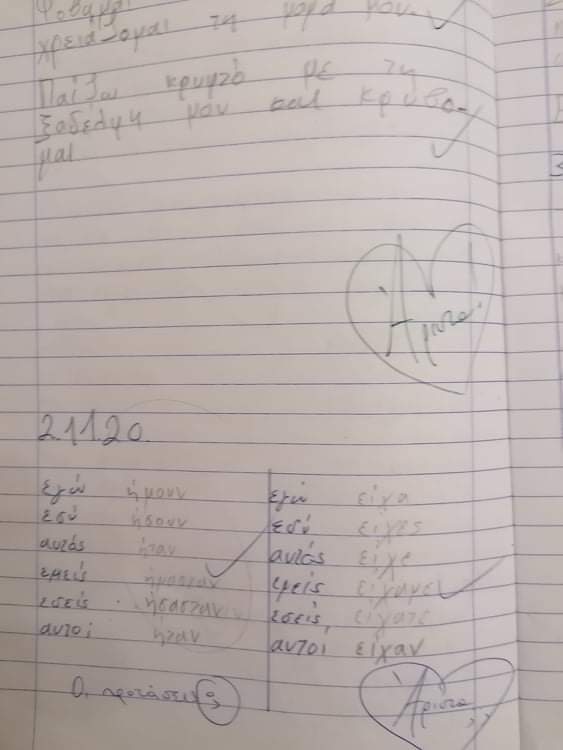 φοβάμαι
χρειάζομαι τη μαμά μου.
Παίζω κρυφτό με τη
ξαδέλφη μου και κρύβο-
μαι
Άριστα!
2.11.20.
εγώ ήμουν εγώ είχα
εσύ ήσουν εσύ είχες
αυτός ήταν αυτός είχε
εμείς ήμασταν εμείς είχαμε
εσείς ήσασταν εσείς είχατε
αυτοί ήταν αυτοί είχαν
Οι προτάσεις; Άριστα